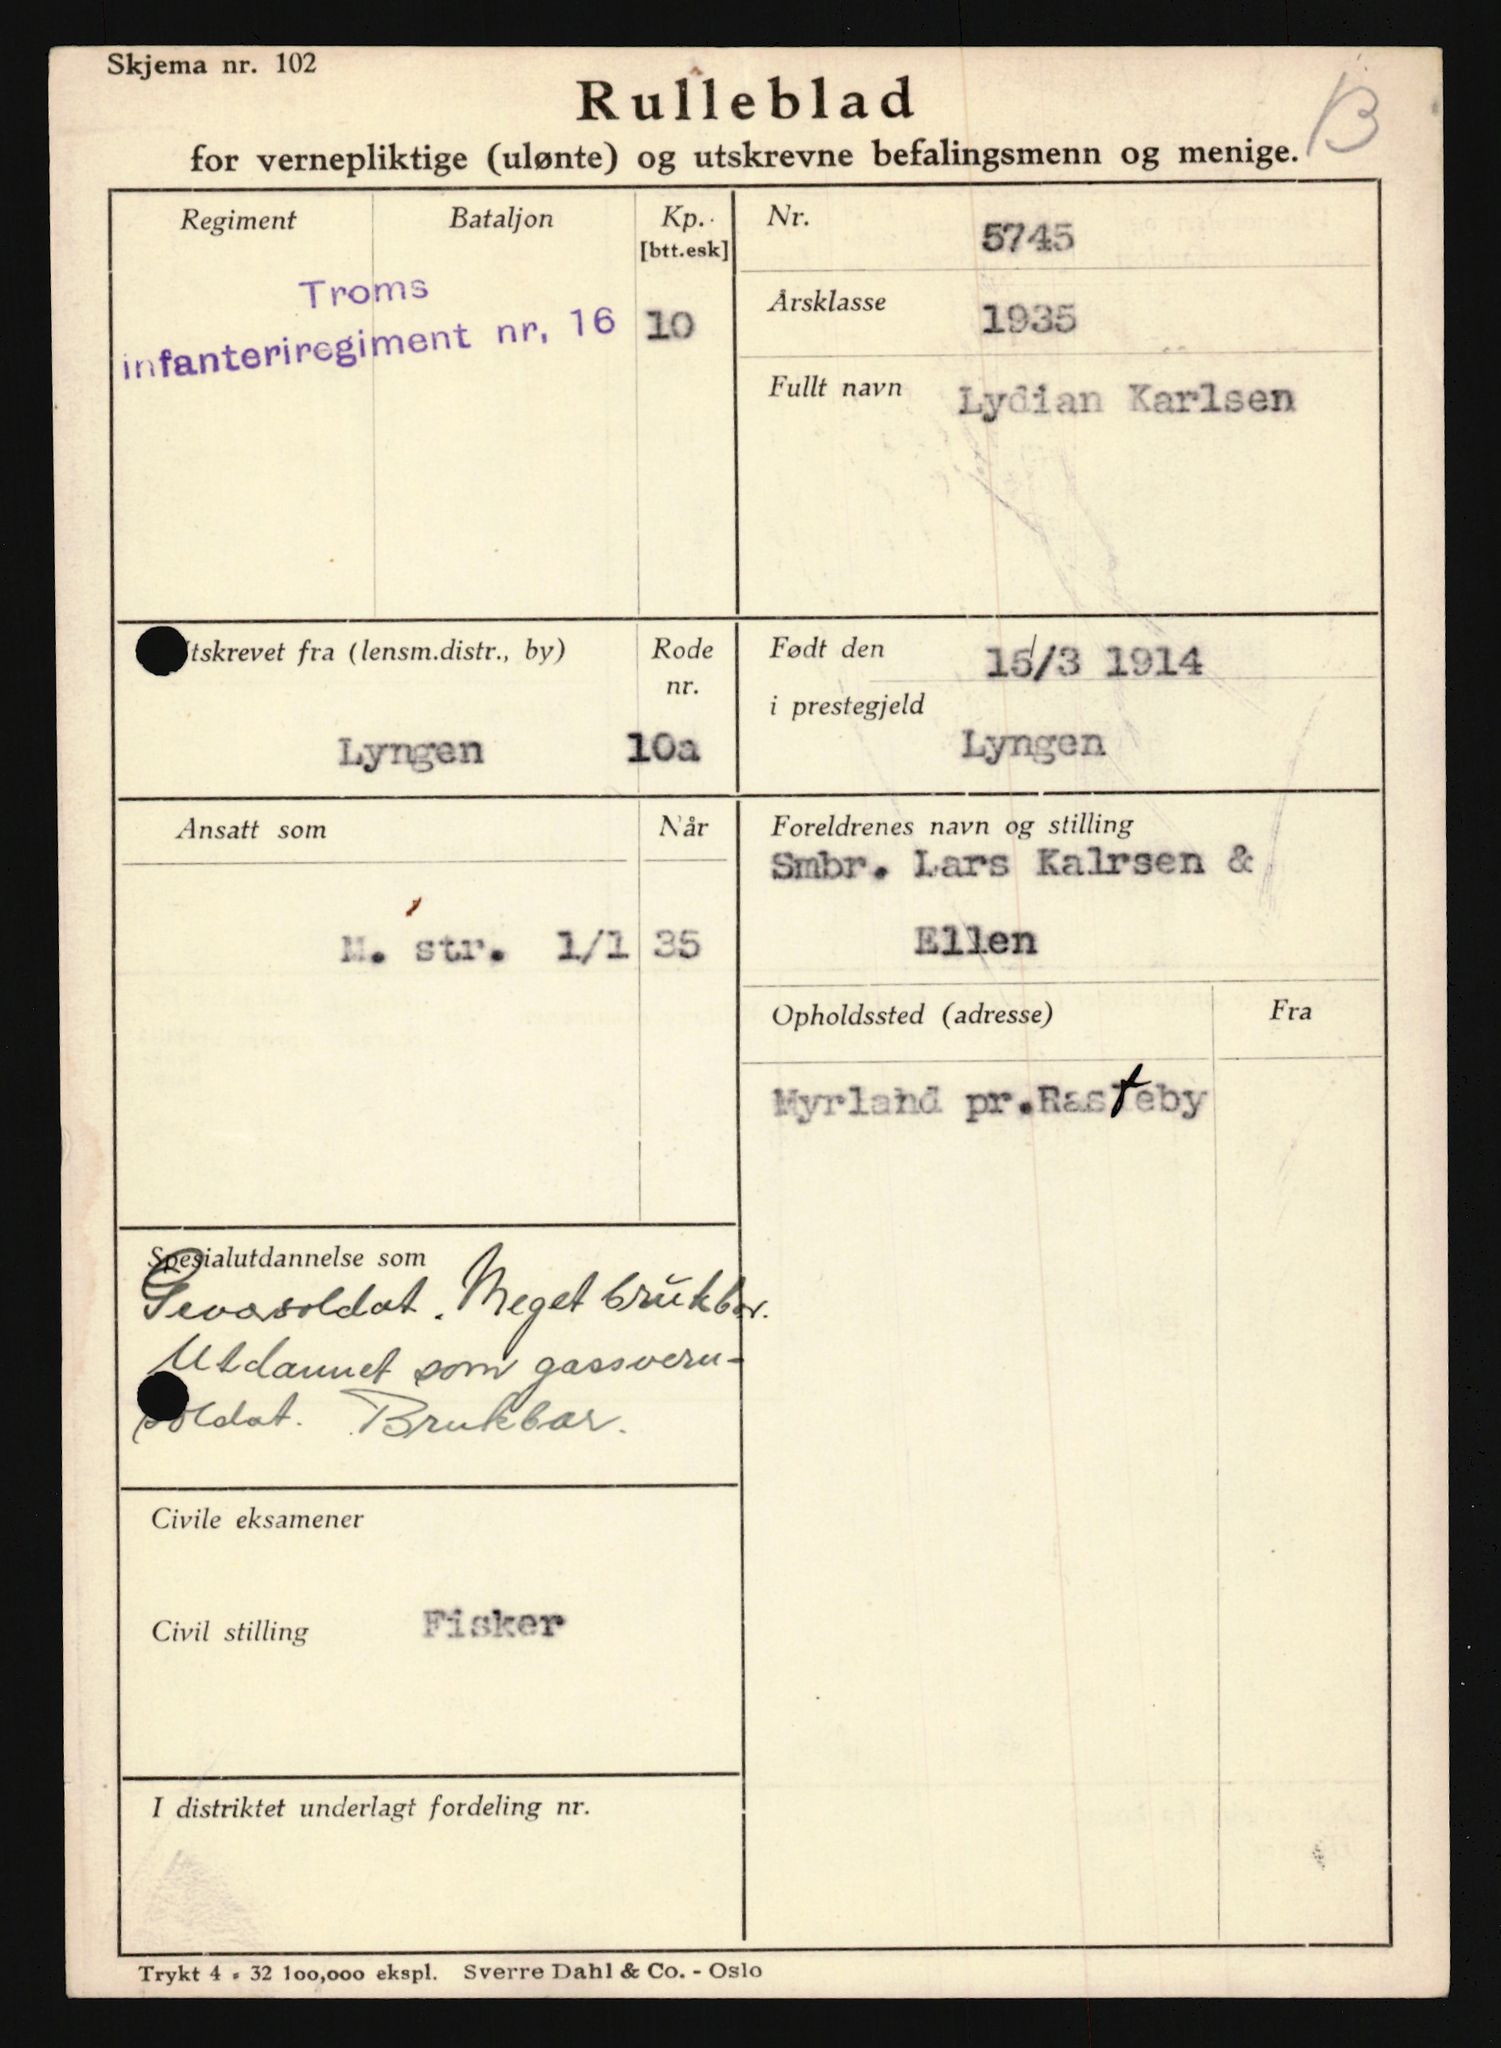 Skjema nr. 102
Rulleblad
B
for vernepliktige (ulønte) og utskrevne befalingsmenn og menige.
Regiment
Bataljon
Kp.
[btt.esk]
Troms
infanteriregiment nr, 16
10
Nr.
5745
Årsklasse
1935
Fullt navn
Lydian Karlsen
tskrevet fra (lensm.distr., by)
Rode
nr.
Lyngen
10a
Født den
15/3 1914
i prestegjeld
Lyngen
Ansatt som
Når
M. str. 1/1 35
Foreldrenes navn og stilling
Smbr. Lars Kalrsen &
Ellen
Opholdssted (adresse)
Fra
Myrland pr.Rasteby
Spesialutdannelse som
Geværsoldat. Meget brukbar.
Utdannet som gassvern-
soldat. Brukbar.
Civile eksamener
Civil stilling
Fisker
I distriktet underlagt fordeling nr.
Trykt 4 - 32 100,000 ekspl. Sverre Dahl & Co. - Oslo